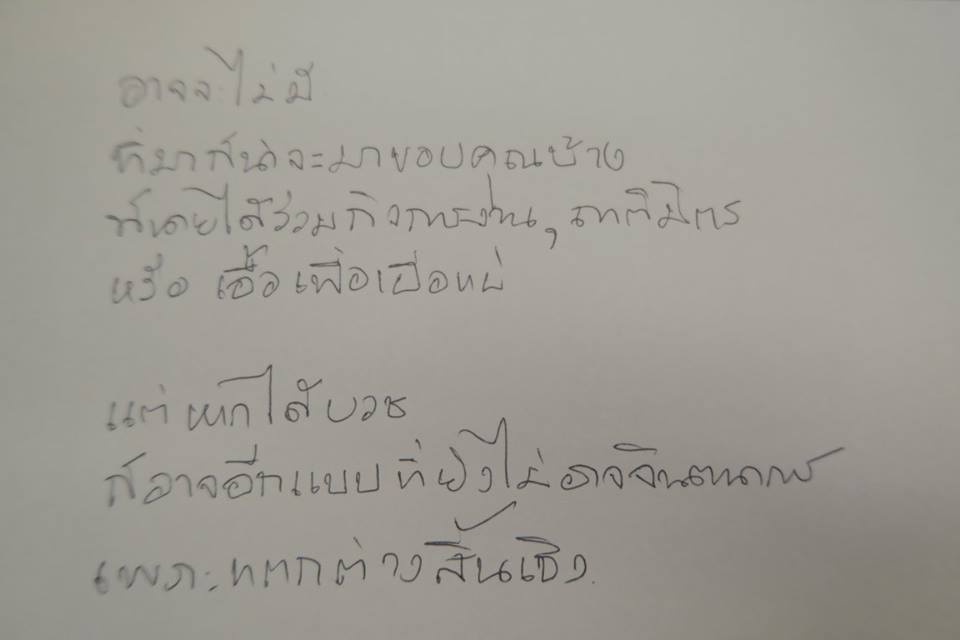 อาจจะไม่มี
ที่มาก็น่าจะมาขอบคุณบ้าง
ที่เคยได้ร่วมกิจการงาน, ญาติมิตร
หรือ เอื้อเฟื้อเผื่อแผ่
แต่หากได้บวช
ก็อาจอีกแบบที่ยังไม่อาจจินตนาการ
เพราะแตกต่างสิ้นเชิง.